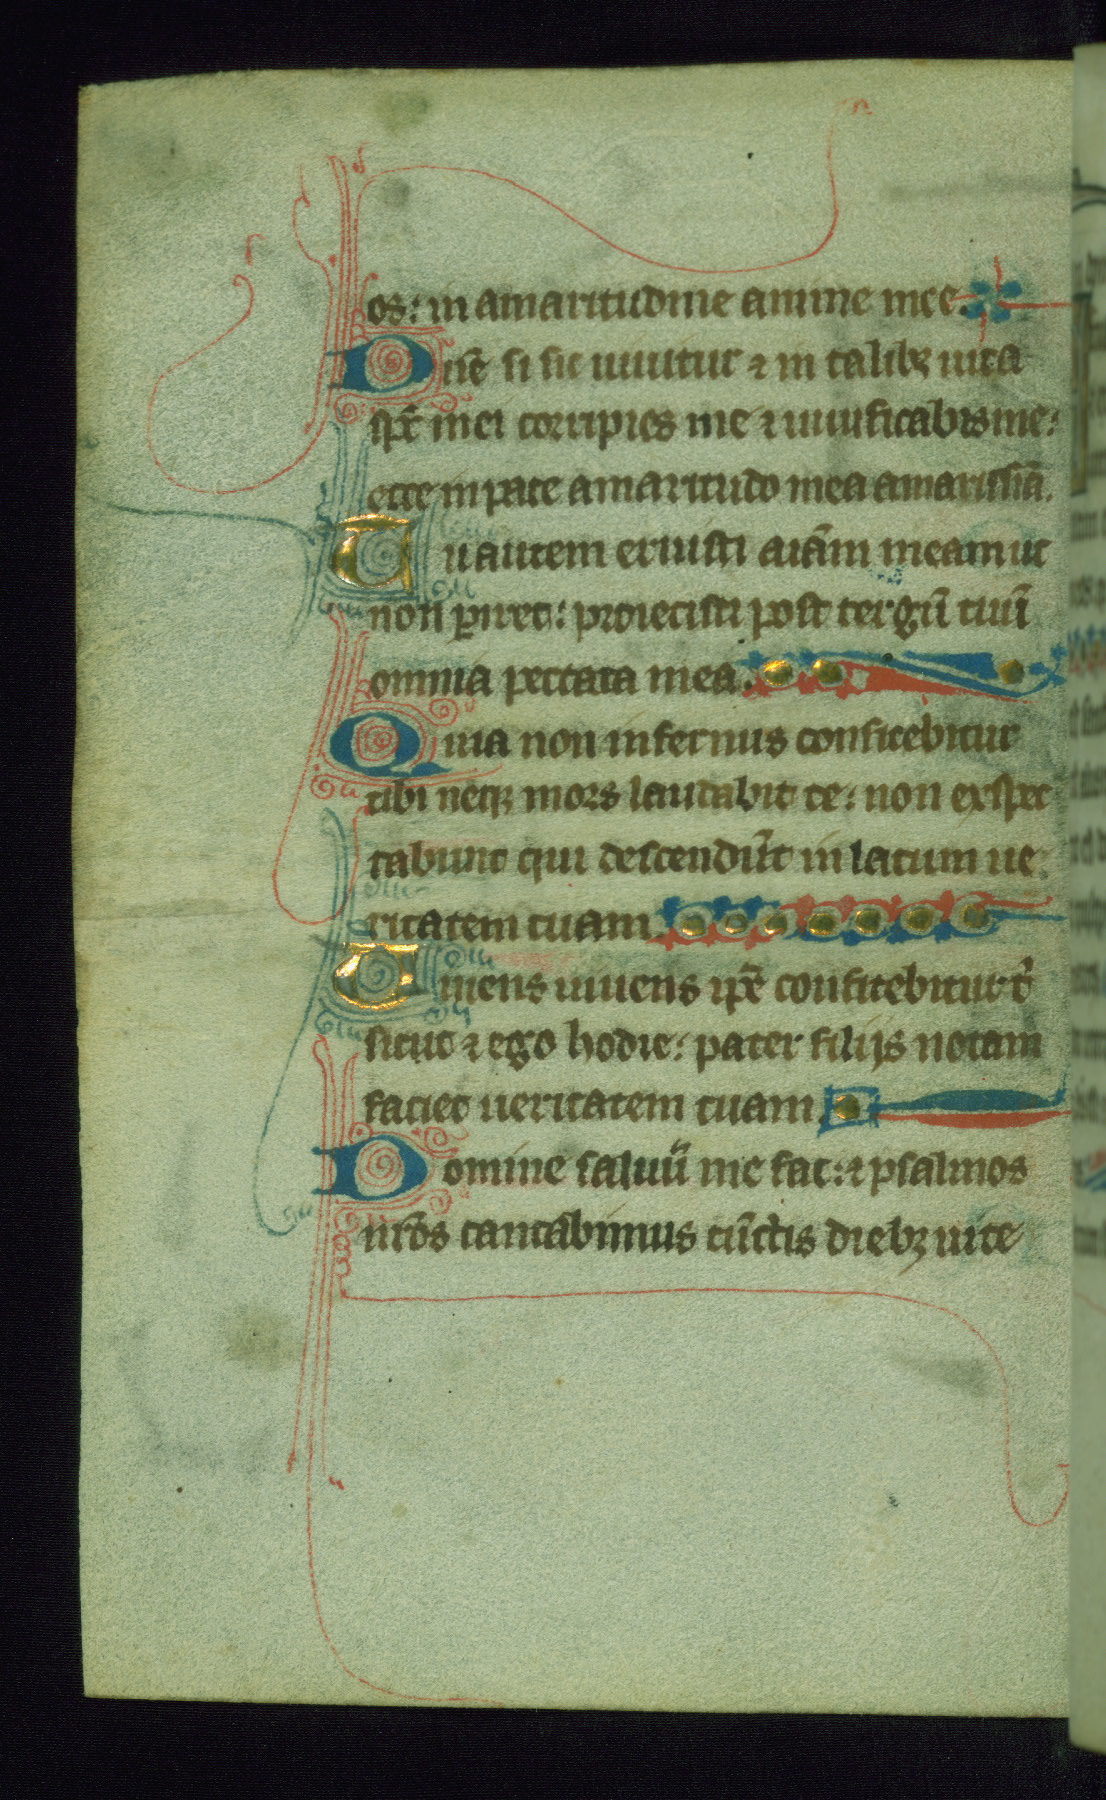 os: in amaritudine anime mee.
Dñe si sic uiuitur ⁊ in talibꝫ uita
sp̃c mei corripies me ⁊ uiuificabis me:
ecce in pace amaritudo mea amarissĩa.
Tu autem eruisti aĩam meam ut
non ꝑiret: proiecisti post tergũ tuũ
omnia peccata mea.
Quia non infernus confitebitur
tibi neqꝫ mors laudabit te: non expec
tabunt qui descendũt in lacum ue
ritatem tuam.
Uiuens uiuens ip̃e confitebitur t̾
sicut ⁊ ego hodie: pater filijs notam
faciet ueritatem tuam.
Domine saluũ me fac: ⁊ psalmos
nr̃os cantabimus cũctis diebꝫ uite